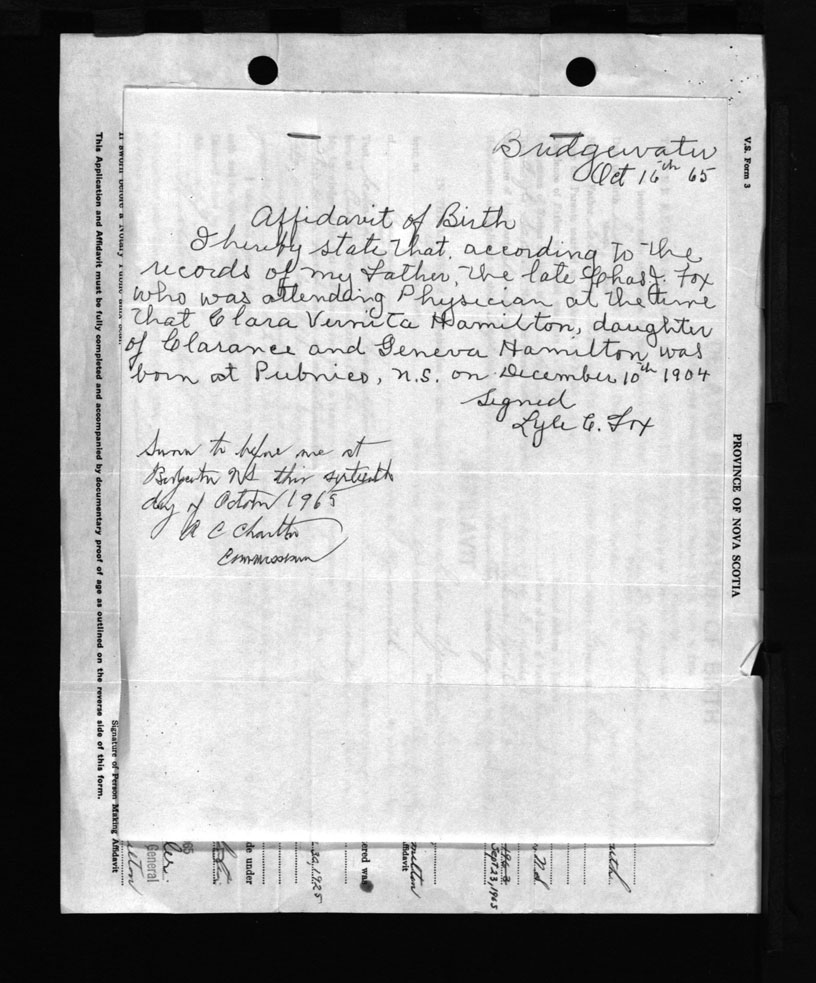 Bridgewater
Oct 16th 65
Affidavit of Birth
I hereby state that, according to the
records of my Father, the late Chas. J. Fox
who was attending Physician at the time
that Clara Vernita Hamilton, daughter
of Clarance and Geneva Hamilton, was
born at Pubnico, N.S. on December 10th 1904
Signed
Lyle C. Fox
Sworn to before me at
Bridgewater NS this sixteenth
day of October 1965
A C
Commissioner
V.S. Form 3
PROVINCE OF NOVA SCOTIA
This Application and Affidavit must be fully completed and accompanied by documentary proof of age as outlined on the reverse side of this form.
Signature of Person Making Affidavit
General
65
de under
30, 1925
ered was
milton
ffidavit
Sept 23, 1965
N.S.